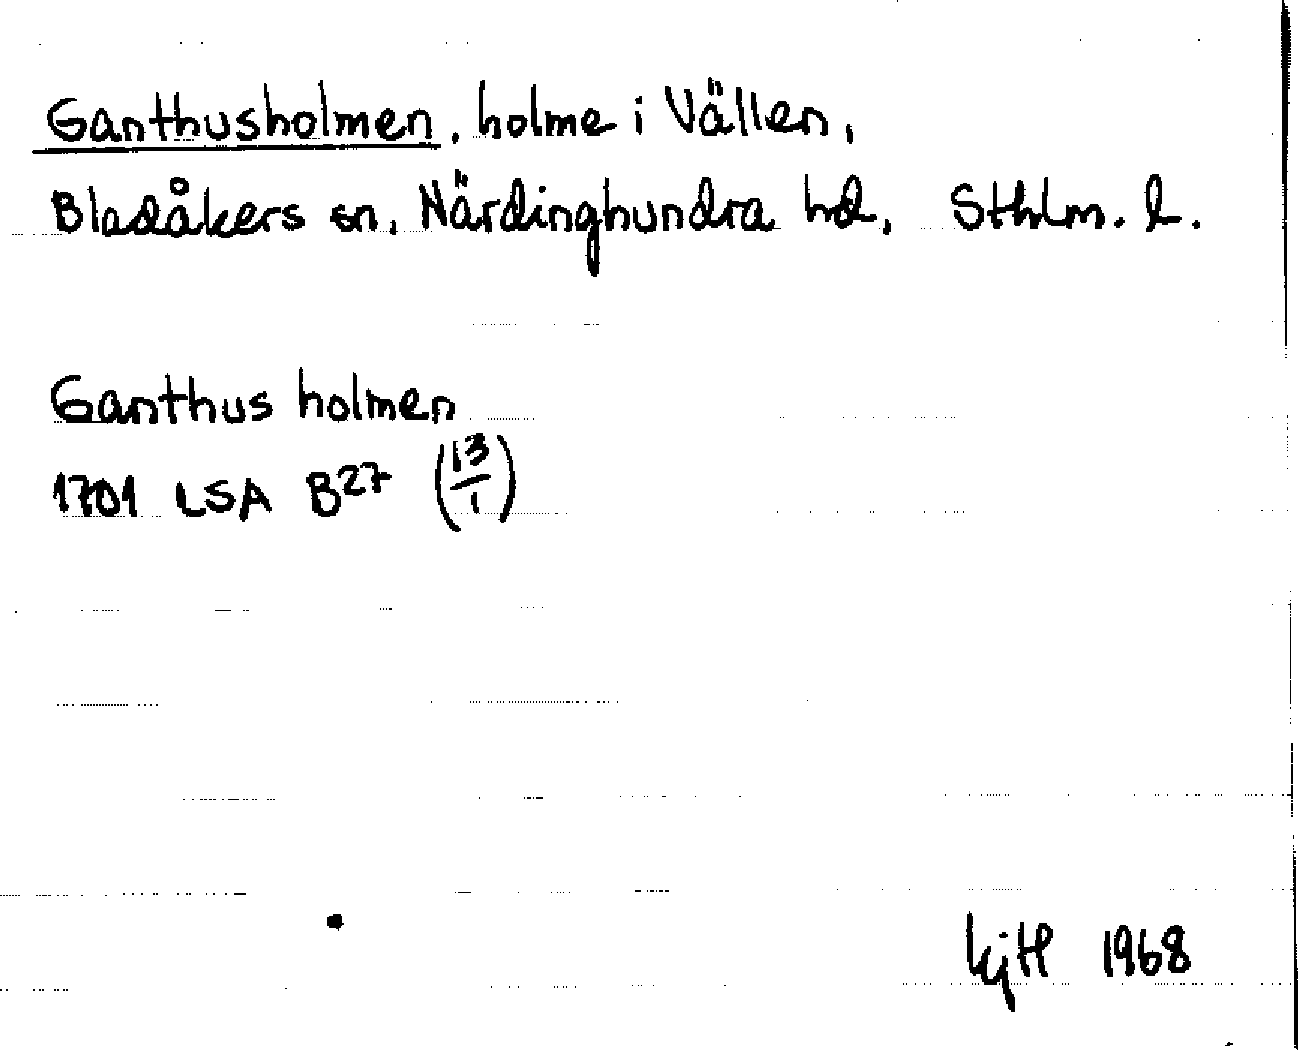 Ganthusholmen, holme i Vällen,
Bladåkers sn, Närdinghundra hd, Sthlm. l.
Ganthus holmen
1701 LSA B27 (13/1)
KjH 1968